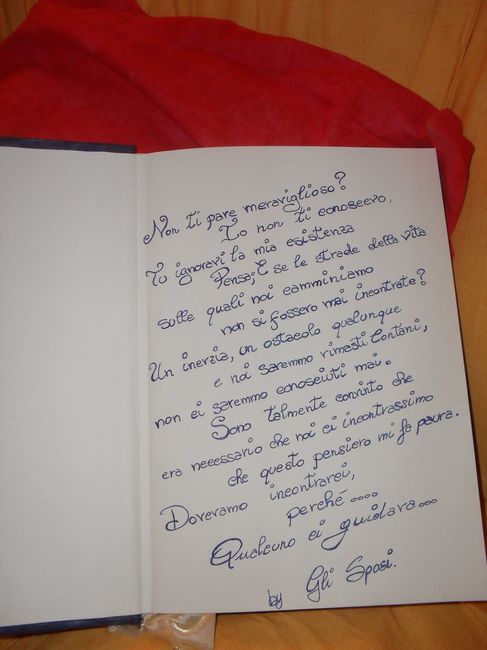 Non ti pare meraviglioso?
Io non ti conoscevo,
Tu ignoravi la mia esistenza
Pensa; E se le strade della vita
sulle quali noi camminiamo
non si fossero mai incontrate?
Un inerzia, un ostacolo qualunque
e noi saremmo rimasti lontani,
non ci saremmo conosciuti mai.
Sono talmente convinto che
era necessario che noi ci incontrassimo
che questo pensiero mi fa paura.
Dovevamo incontrarci,
perché....
Qualcuno ci guidava...
by Gli Sposi.